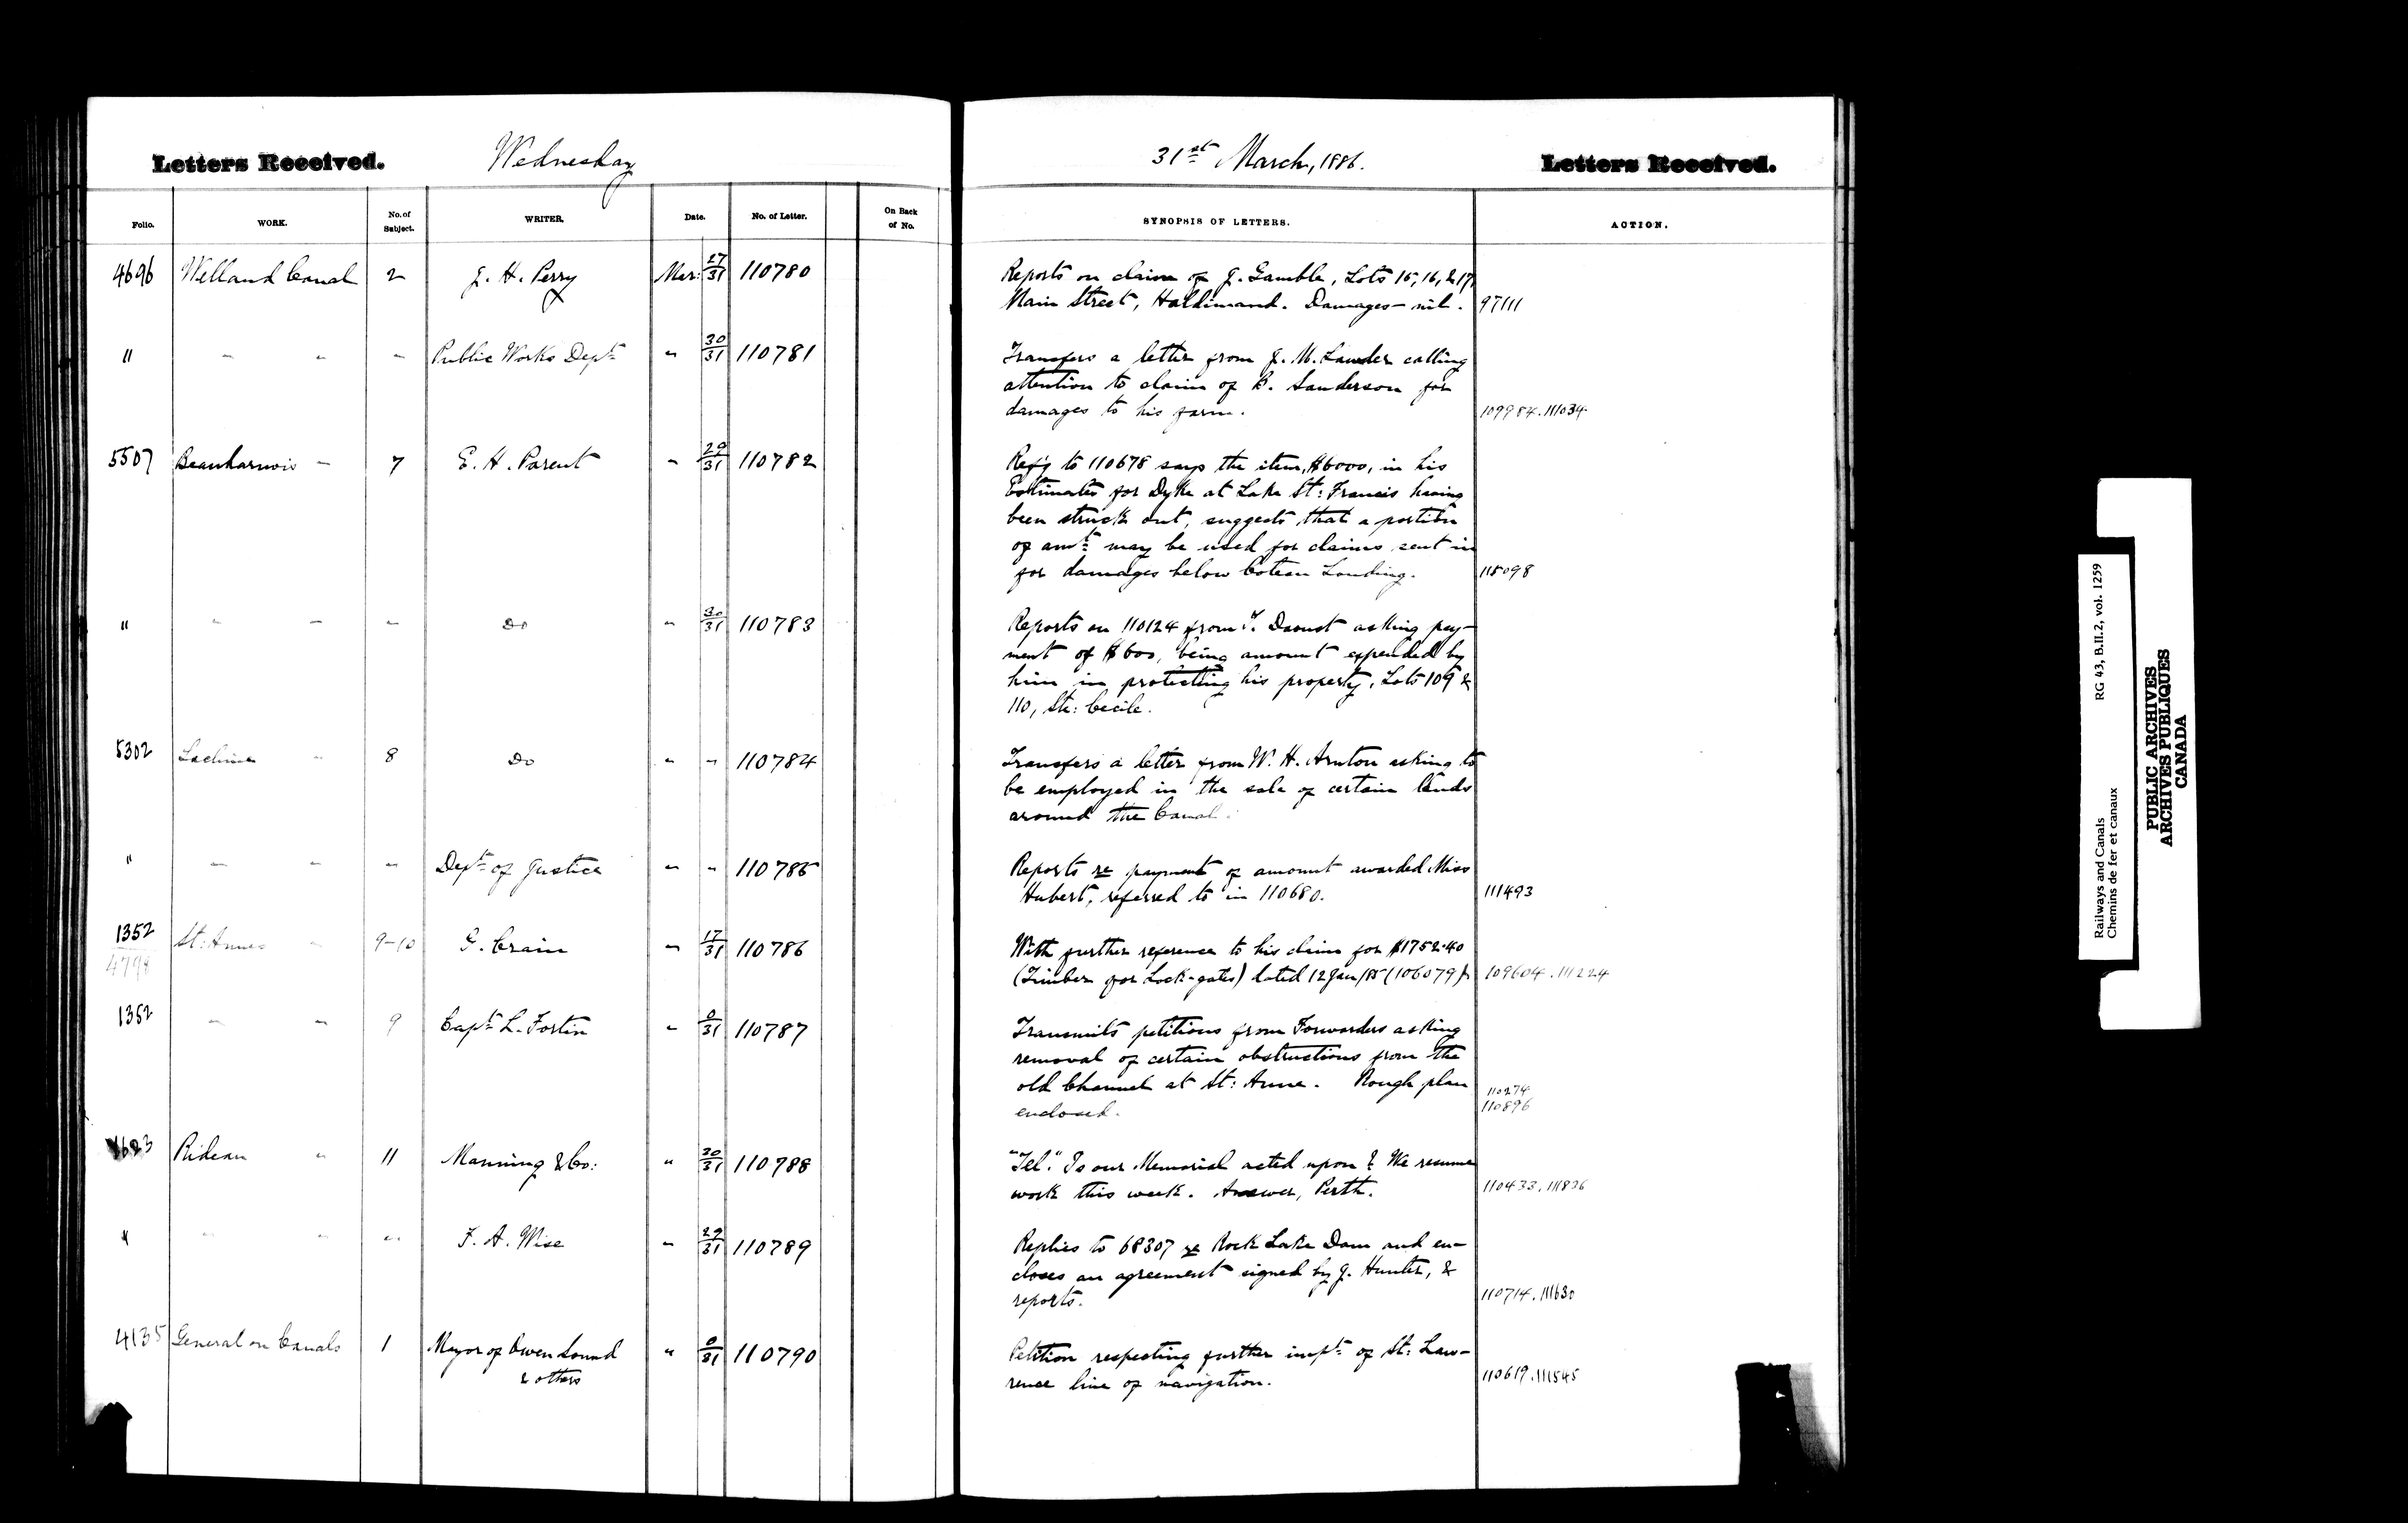 Letters Received. Wednesday 31st March, 1886. Letters Received.
Folio. WORK. No. of Subject. WRITER. Date. No. of Letter. On Back of No. SYNOPSIS OF LETTERS. ACTION.
4696 Welland Canal 2 E. H. Perry Mar: 27/31 110780 Reports on claim of J. Gamble, Lots 15, 16, & 17,
Main Street, Haldimand. Damages - nil. 97111
" " " " Public Works Dept " 30/31 110781 Transfers a letter from J. M. Lauder calling
attention to claim of B. Sanderson for
damages to his farm. 109984. 111034
5507 Beauharnois " 7 E. H. Parent " 29/31 110782 Ref'g to 110678 says the item, $6000, in his
Estimates for Dyke at Lake St: Francis having
been struck out, suggests that a portion
of amt: may be used for claims sent in
for damages below Coteau Landing. 115098
" " " " Do " 30/31 110783 Reports on 110124 from T. Daoust asking pay-
ment of $600, being amount expended by
him in protecting his property, Lots 109 &
110, Ste: Cecile.
5302 Lachine " 8 Do " " 110784 Transfers a letter from W. H. Arnton asking to
be employed in the sale of certain lands
around the Canal.
" " " " Dept of Justice " " 110785 Reports re payment of amount awarded Miss
Hubert, referred to in 110680. 111493
1352 St: Annes " 9-10 G. Crain " 17/31 110786 With further reference to his claim for $1752.40
4798 (Timber for Lock-gates) dated 12 Jan/85 (106079). 109604. 111224
1352 " " 9 Capt L. Fortin " 0/31 110787 Transmits petitions from Forwarders asking
removal of certain obstructions from the
old Channel at St: Anne. Rough plan 110274
enclosed. 110896
Rideau " 11 Manning & Co: " 30/31 110788 "Tel." Is our Memorial acted upon? We resume
work this week. Answer, Perth. 110433. 111836
" " " " F. A. Wise " 29/31 110789 Replies to 68307 re Rock Lake Dam and en-
closes an agreement signed by J. Hunter, &
reports. 110714. 111630
4135 General on Canals 1 Mayor of Owen Sound " 0/31 110790 Petition respecting further impt: of St: Law-
& others rence line of navigation. 110619. 111545
Railways and Canals RG 43, B.II.2, vol. 1259
Chemins de fer et canaux
PUBLIC ARCHIVES
ARCHIVES PUBLIQUES
CANADA